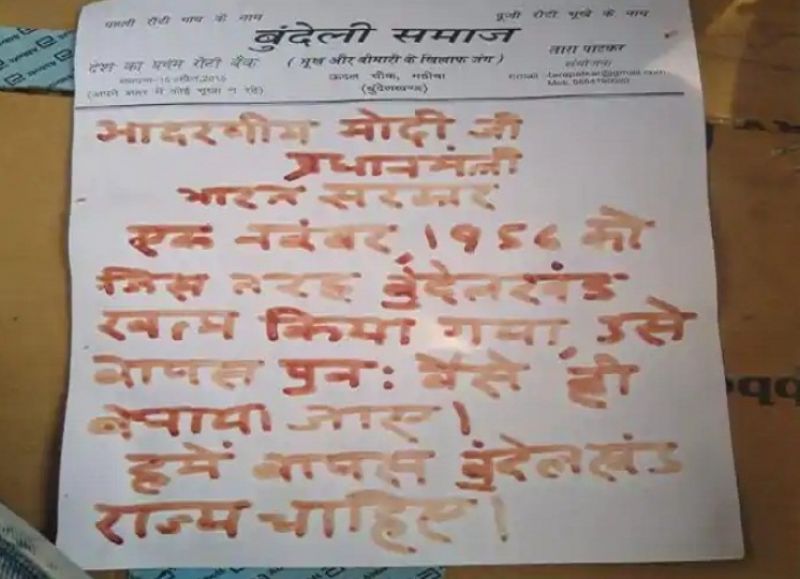 पहली रोटी गाय के नाम
दूजी रोटी भूखे के नाम
बुंदेली समाज
देश का प्रथम रोटी बैंक
( भूख और बीमारी के खिलाफ जंग )
तारा पाटकर
संयोजक
स्थापना-15 अप्रैल,2015
ऊदल चौक, महोबा
(अपने शहर में कोई भूखा न रहे)
(बुंदेलखण्ड)
email
Mob.
आदरणीय मोदी जी
प्रधानमंत्री
भारत सरकार
एक नवंबर, १९५६ को
जिस तरह बुंदेलखंड
खत्म किया गया, उसे
वापस पुनः वैसे ही
बनाया जाए।
हमें वापस बुंदेलखंड
राज्य चाहिए।